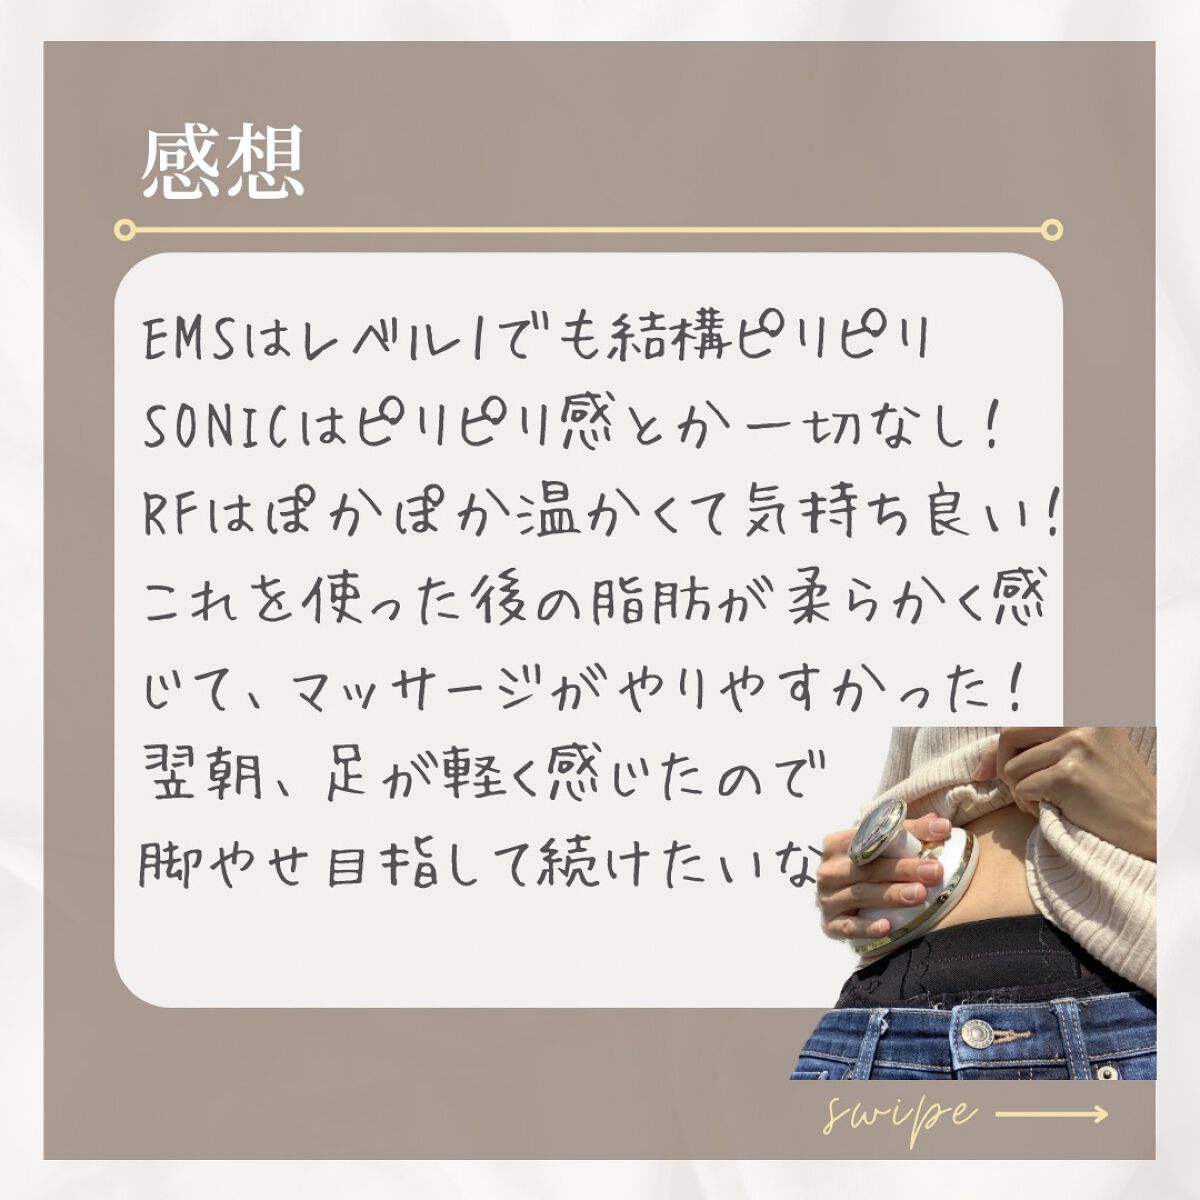 感想
EMSはレベル1でも結構ピリピリ
SONICはピリピリ感とか一切なし！
RFはぽかぽか温かくて気持ち良い！
これを使った後の脂肪が柔らかく感
じて、マッサージがやりやすかった！
翌朝、足が軽く感じたので
脚やせ目指して続けたいな
swipe